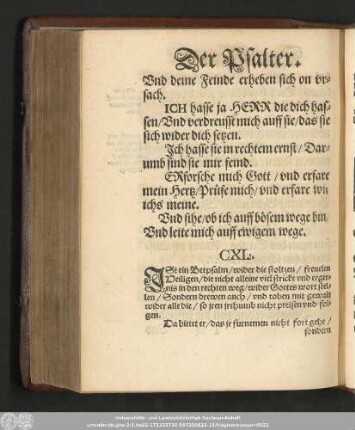 Der Psalter.
Vnd deine Feinde erheben sich on vr-
sach.
ICH hasse ja HERR die dich has-
sen/Vnd verdreusst mich auff sie/das sie
sich wider dich setzen.
Jch hasse sie in rechtem ernst/ Dar-
umb sind sie mir feind.
ERforsche mich Gott / vnd erfare
mein Hertz/Prüfe mich/ vnd erfare wie
ichs meine.
Vnd sihe/ob ich auff bösem wege bin/
Vnd leite mich auff ewigem wege.
CXL.
ISt ein Betpsalm/wider die stoltzen/ freuelen
Heiligen/die nicht alleine viel stricke vnd erger-
nis in den rechten weg/wider Gottes wort stel-
len/ Sondern drewen auch/ vnd toben mit gewalt
wider alle die/ so jren jrthumb nicht preisen vnd fol-
gen.
Da bittet er/das jr furnemen nicht fort gehe/
sondern
Universitäts- und Landesbibliothek Sachsen-Anhalt